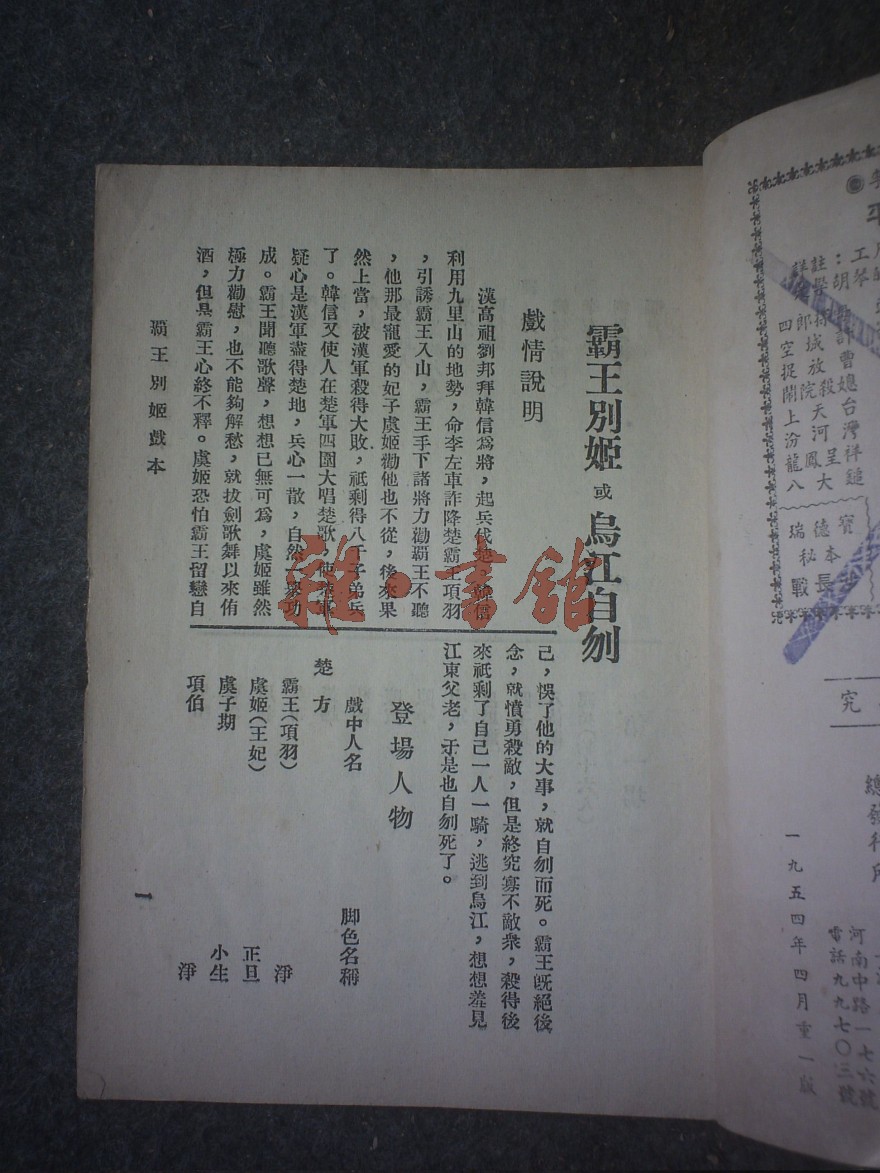 霸王別姬 或 烏江自刎
戲情說明
漢高祖劉邦拜韓信爲將,起兵伐楚。韓信
利用九里山的地勢,命李左車詐降楚霸王項羽
,引誘霸王入山,霸王手下諸將力勸覇王不聽
,他那最寵愛的妃子虞姬勸他也不從,後來果
然上當,被漢軍殺得大敗,祇剩得八千子弟兵
了。韓信又使人在楚軍四圍大唱楚歌,使楚軍
疑心是漢軍盡得楚地,兵心一散,自然一舉功
成。霸王聞聽歌聲,想想已無可爲,虞姬雖然
極力勸慰,也不能夠解愁,就拔劍歌舞以來侑
酒,但是霸王心終不釋。虞姬恐怕霸王留戀自
己,悞了他的大事,就自刎而死。霸王旣絕後
念,就憤勇殺敵,但是終究寡不敵衆,殺得後
來祇剩了自己一人一騎,逃到烏江,想想羞見
江東父老,于是也自刎死了。
登場人物
戲中人名 脚色名稱
楚方
霸王(項羽) 淨
虞姬(王妃) 正旦
虞子期 小生
項伯 淨
覇王別姬戲本
一
雜·書舘
寶
德本
瑞秘
戰長
究
總發行所
河南中路一七六號
電話九九七〇三號
一九五四年四月重一版